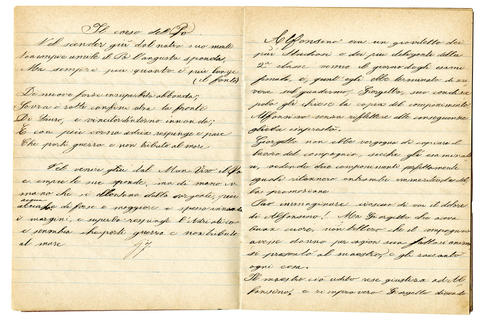 Il corso del Po
Nel scender giù dal natio suo monte
non rompe umile il Po l'angusta sponda,
Ma sempre più quanto è più lunge
il fonte
Di nuove forze insuperbito abbonda;
Sovra i rotti confini alza la fronte
Di tauro, e vincitor intorno inonda;
E con più corna Adria respinge e pare
Che porti guerra e non tributo al mare.
Nel venire giù dal Mon Viso il Po
è empre le sue sponde, ma di mano in
mano che si allontana dalla sorgente, più
acquista di forze e maggiore è spesso innonda
i margini, e superbo respinge l'Adriatico
e sembra che porti guerra e non tributo
al mare
Alfonsino era un giovinetto dei
più studiosi e dei più diligenti della
2ª classe venne il giorno degli esami
finali, e, quand'egli ebbe terminato di scri-
vere sul quaderno, Giorgetto, suo condisce-
polo gli chiese la copia del componimento
Alfonsino senza riflettere alle conseguenze
gliela imprestò.
Giorgetto non ebbe vergogna di copiare il
lavoro del compagno, sicché gli esaminato-
ri, vedendo due componimenti perfettamente
uguali rifiutarono entrambi
la promozione
Può immaginare ciascun di voi il dolore
di Alfonsino! Ma Giorgetto che aveva
buon cuore, non tollerò che il compagno
avesse danno per cagion sua
si presentò al maestro, e gli raccontò
ogni cosa.
Il maestro ciò udito rese giustizia ad Al-
fonsino, e rimproverò Giorgetto dicendo